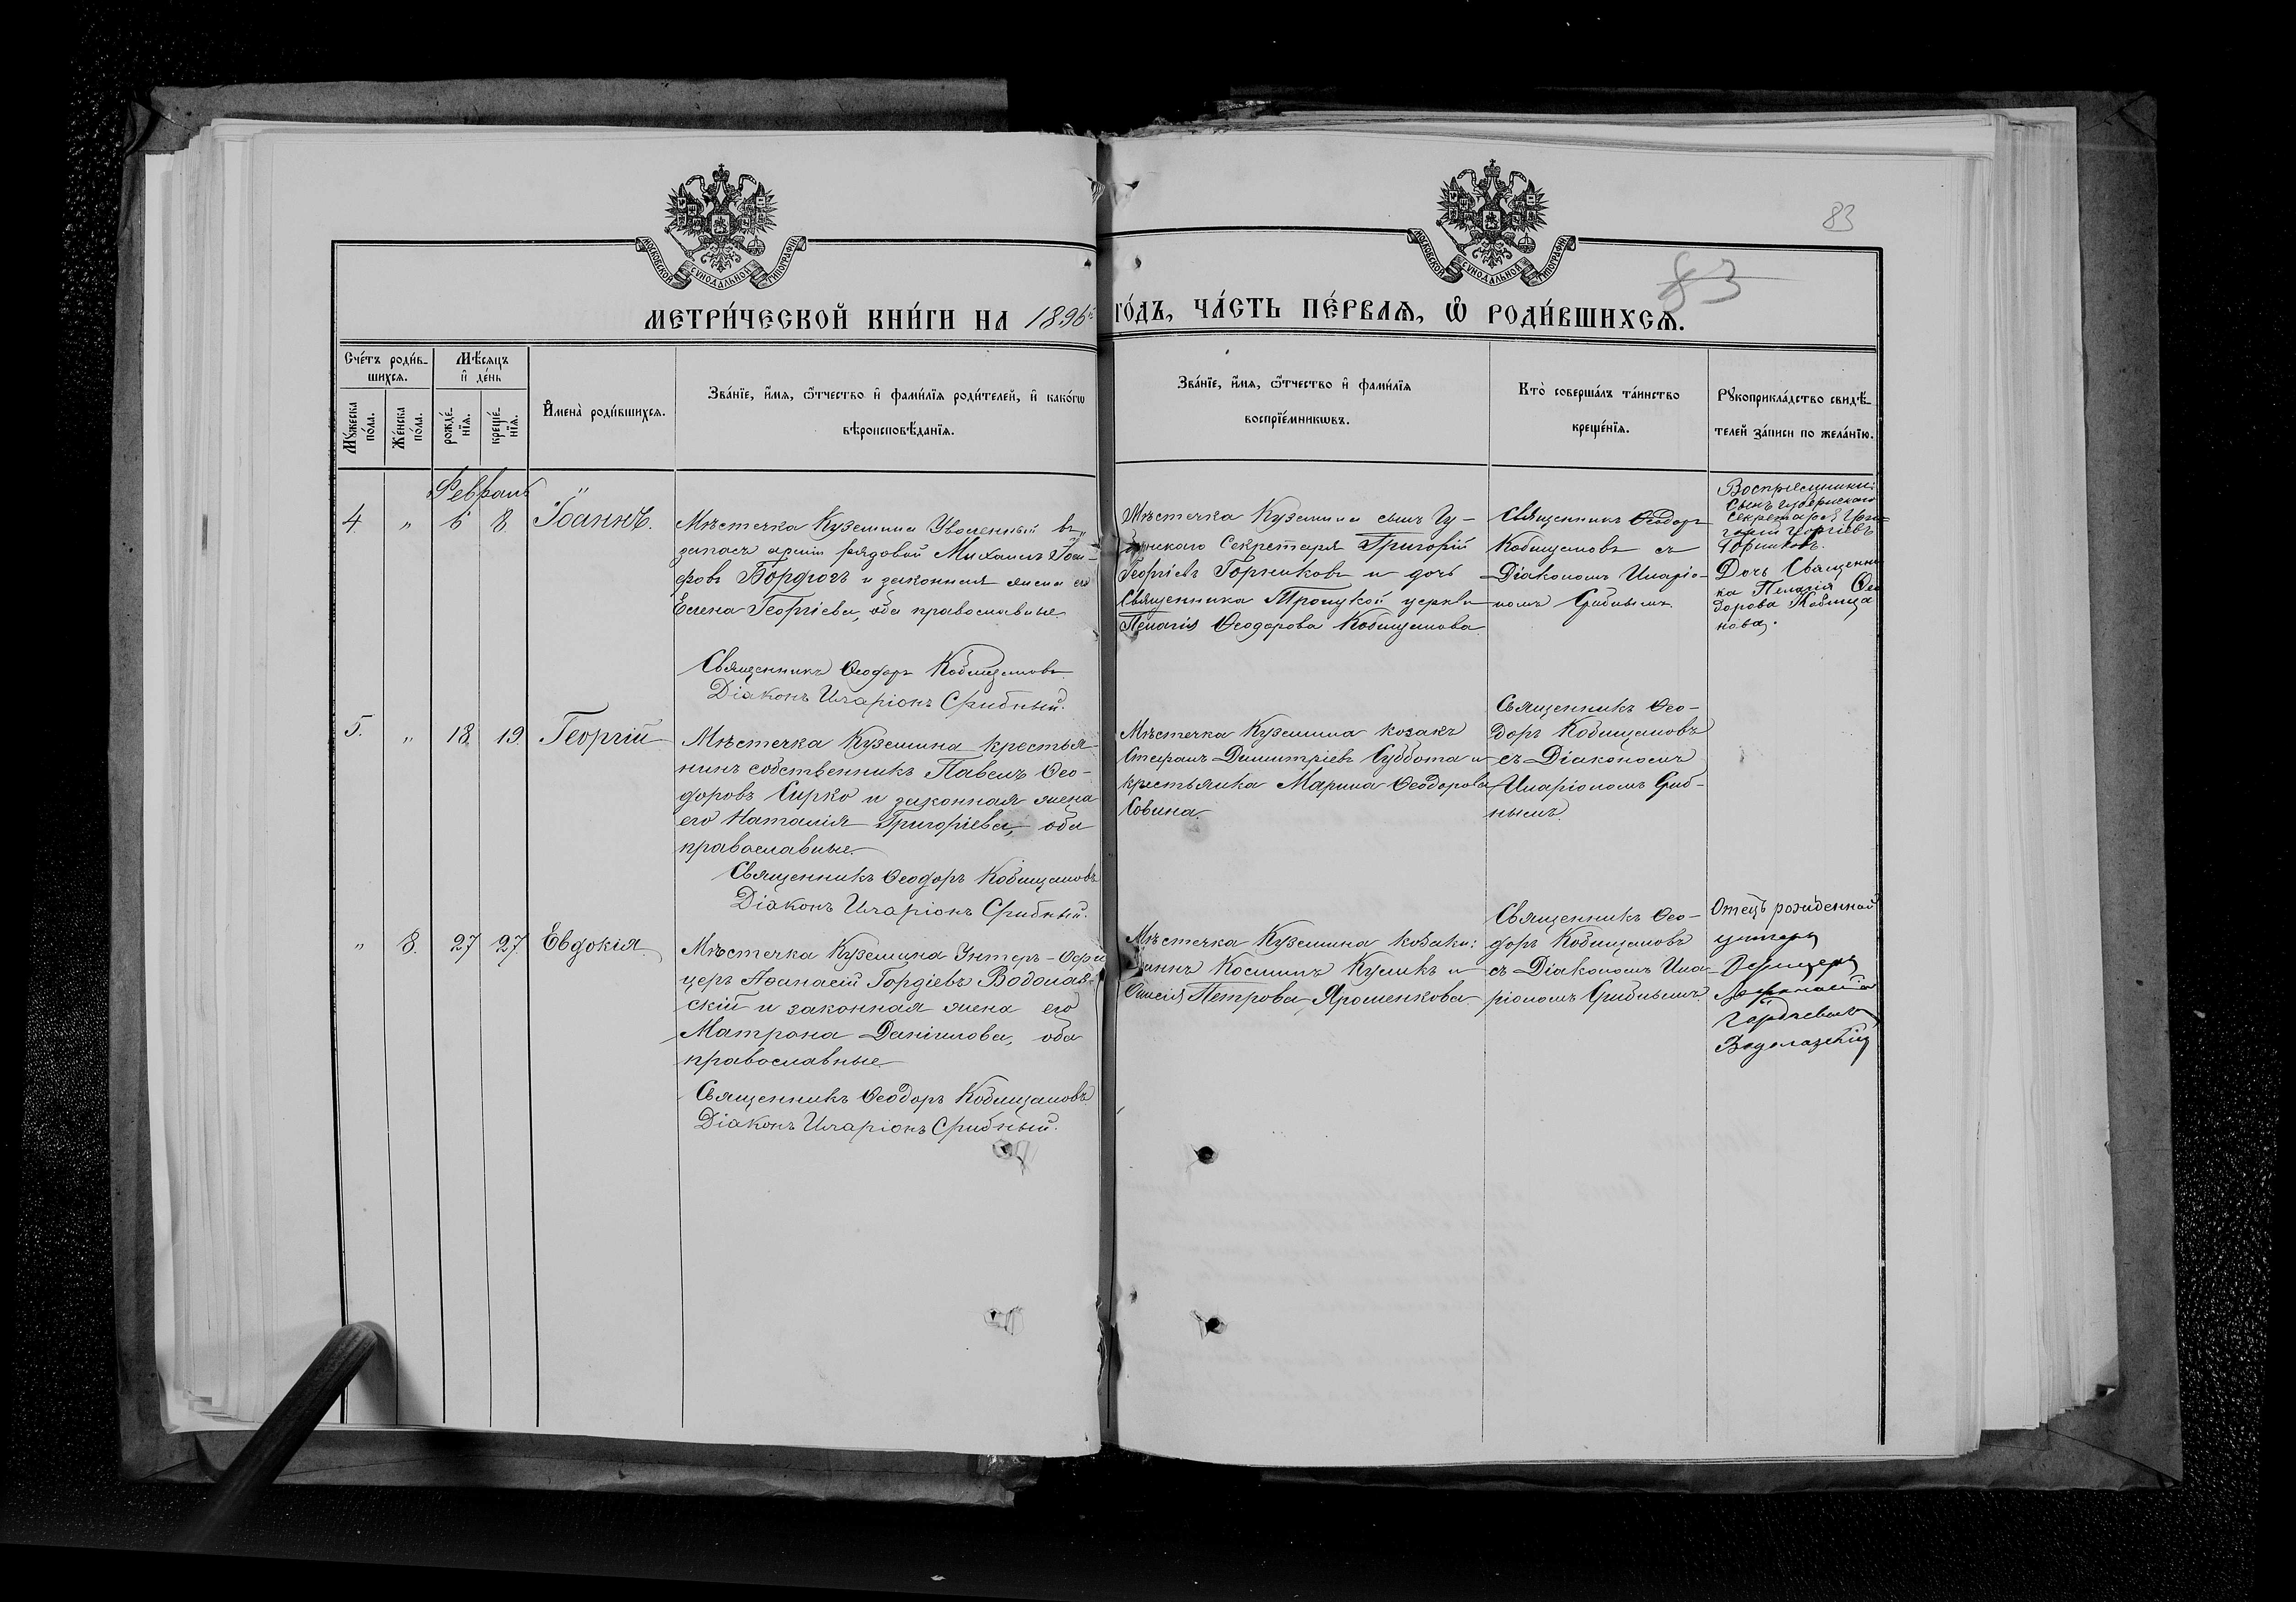 83
83
МОСКОВСКОЙ СѴНОДАЛЬНОЙ ТИПОГРАФІИ
МОСКОВСКОЙ СѴНОДАЛЬНОЙ ТИПОГРАФІИ
МЕТРИ́ЧЕСКОЙ КНИ́ГИ НА 1896й ГО́ДЪ, ЧА́СТЬ ПЕ́РВАѦ, Ѡ҆ РОДИ́ВШИХСѦ.
Сче́тъ роди́в-
шихсѧ.
Мѣ́сѧцъ
и҆ де́нь
Мꙋ́жеска
по́ла.
Же́нска
по́ла.
рожде́-
нїѧ.
креще́-
нїѧ.
И҆мена̀ роди́вшихсѧ.
Зва́нїе, и҆́мѧ, ѻ҆́тчество и҆ фами́лїѧ роди́телей, и҆ како́гѡ
вѣроисповѣ́данїѧ.
Зва́нїе, и҆́мѧ, ѻ҆́тчество и҆ фами́лїѧ
воспрїе́мникѡвъ.
Кто̀ соверша́лъ та́инство
креще́нїѧ.
Рꙋкоприкла́дство свидѣ́-
телей за́писи по жела́нїю.
Февраль
4. „ 6 8. Іоаннъ.
Мѣстечка Куземина Уволенный въ
запасъ арміи рядовой Михаилъ Іоси-
фовъ Бордюгъ и законная жена его
Елена Георгіева, оба православные.
Священникъ Ѳеодоръ Кобищановъ
Діаконъ Иларіонъ Срибный.
Мѣстечка Куземина сынъ Гу-
бернскаго Секретаря Григорій
Георгіевъ Горниковъ и дочь
Священника Троицкой церкви
Пелагія Ѳеодорова Кобищанова.
Священникъ Ѳеодоръ
Кобищановъ съ
Діакономъ Иларіо-
номъ Срибнымъ.
Воспріемники:
Сынъ Губернскаго
Секретаря Гри-
горій Георгіевъ
Горниковъ.
Дочь Священни
ка Пелагія Ѳео
дорова Кобища
нова.
5. „ 18. 19. Георгій
Мѣстечка Куземина крестья-
нинъ собственникъ Павелъ Ѳео-
доровъ Сирко и законная жена
его Наталія Григоріева, оба
православные.
Священникъ Ѳеодоръ Кобищановъ
Діаконъ Иларіонъ Срибный.
Мѣстечка Куземина козакъ
Стефанъ Димитріевъ Суббота и
крестьянка Марина Ѳеодорова
Совина.
Священникъ Ѳео-
доръ Кобищановъ
съ Діакономъ
Иларіономъ Сриб-
нымъ.
„ 8. 27 27. Евдокія.
Мѣстечка Куземина Унтеръ-Офи
церъ Аѳанасій Гордіевъ Водолаж-
скій и законная жена его
Матрона Даніилова, оба
православные.
Священникъ Ѳеодоръ Кобищановъ
Діаконъ Иларіонъ Срибный.
Мѣстечка Куземина козаки:
Косминъ Куликъ и
Петрова Ярошенкова.
Священникъ Ѳео-
доръ Кобищановъ
съ Діакономъ Ила-
ріономъ Срибнымъ.
Отецъ рожденной
унтеръ
Офицеръ
Гордіевъ